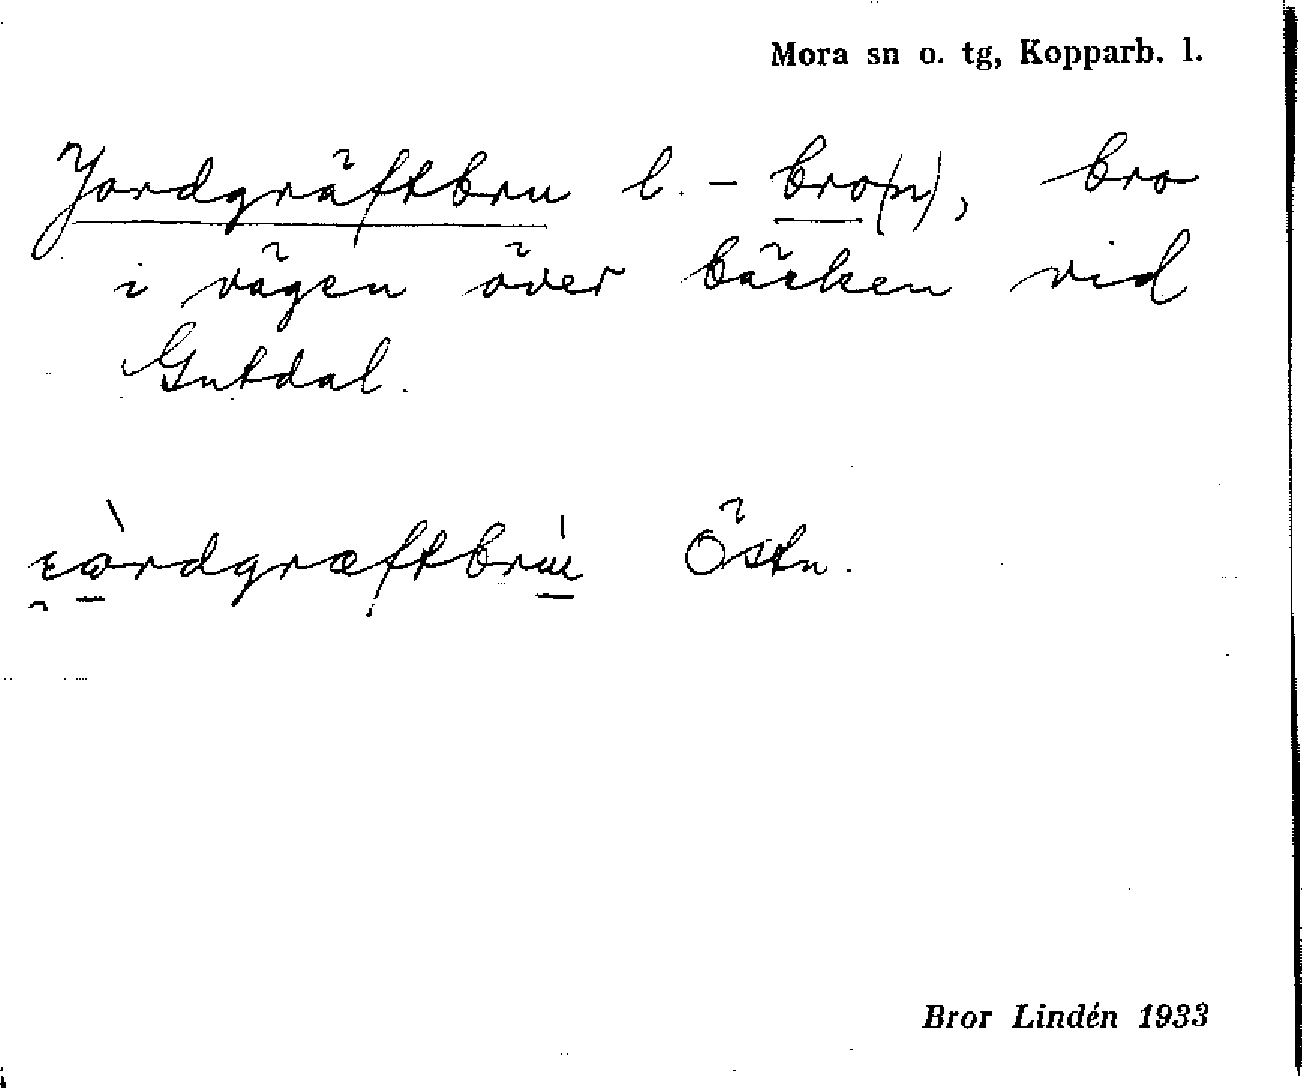 Mora sn o. tg, Kopparb. l.
Jordgräftbru l. - bro(n), bro
i vägen över bäcken vid
Gutdal.
Östn.
Bror Lindén 1933